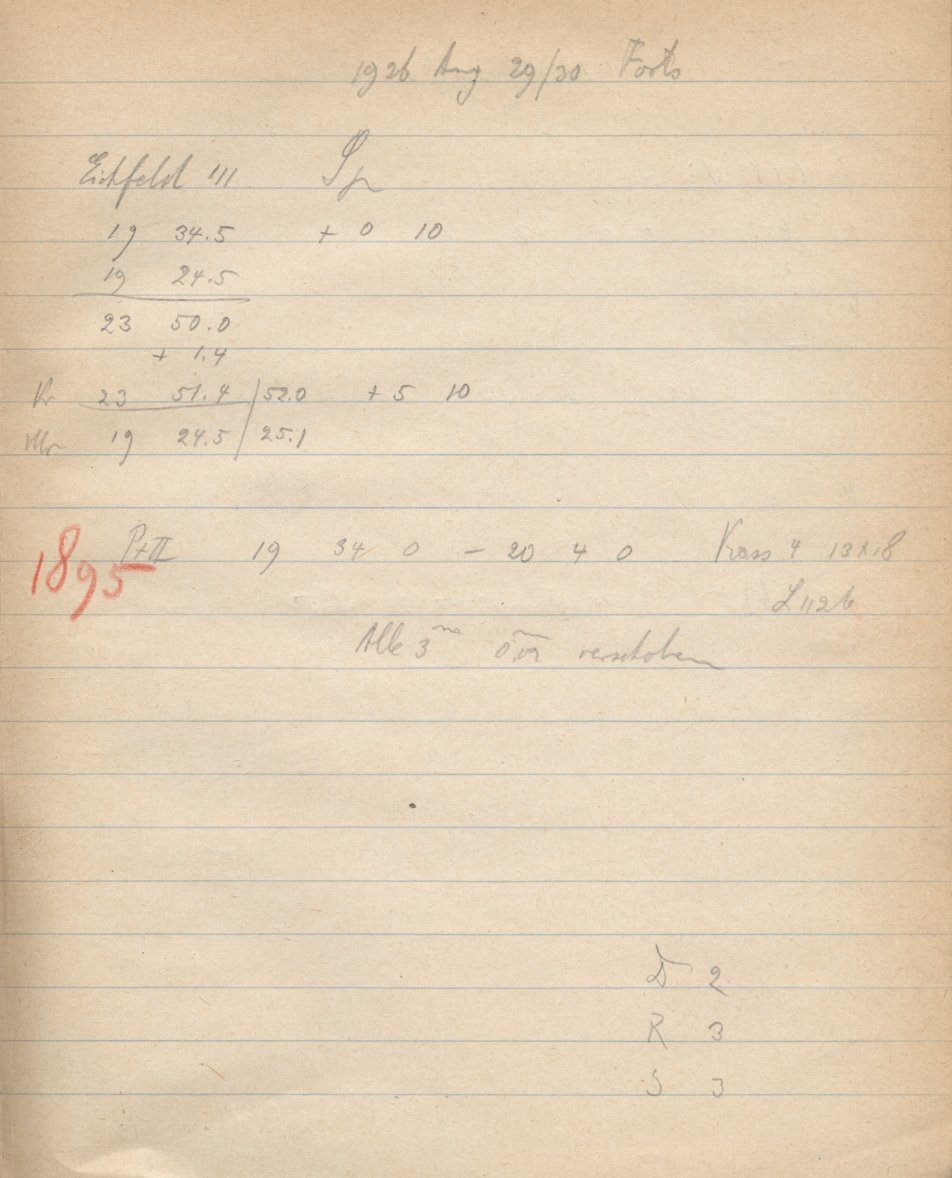 1926 Aug 29/30 Forts
Eichfeld III Sp
19 34.5 + 0 10
19 24.5
23 50.0
+ 1.4
Kr 23 51.4 52.0 + 5 10
19 24.5 25.1
1895 Pt II 19 34 0 – 20 4 0 Krass 4 13x18
L 1126
Alle 3m verschoben
D 2
R 3
S 3